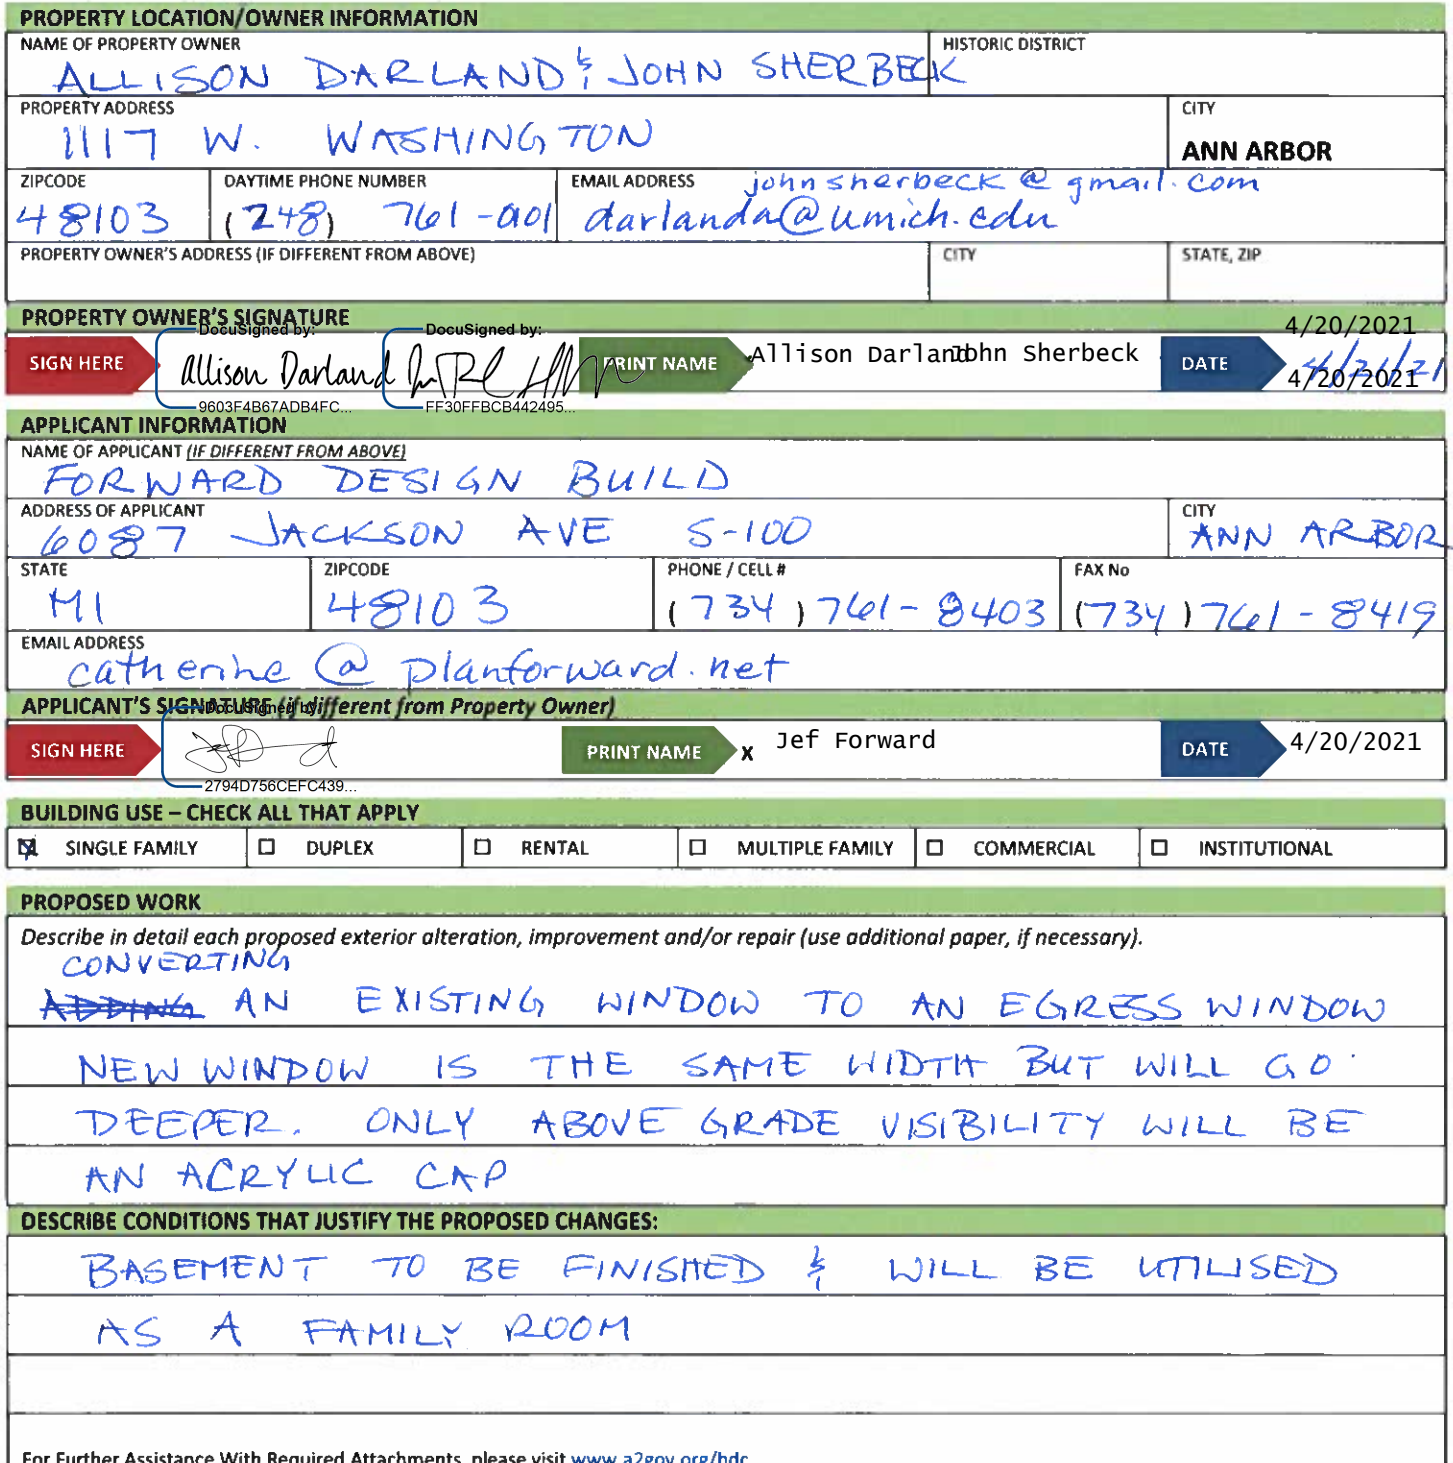 PROPERTY LOCATION/OWNER INFORMATION
NAME OF PROPERTY OWNER HISTORIC DISTRICT
ALLISON DARLAND & JOHN SHERBECK
PROPERTY ADDRESS CITY
1117 W. WASHINGTON ANN ARBOR
ZIPCODE DAYTIME PHONE NUMBER EMAIL ADDRESS johnsherbeck@gmail.com
48103 (248) 761- darlanda@umich.edu
PROPERTY OWNER'S ADDRESS (IF DIFFERENT FROM ABOVE) CITY STATE, ZIP
PROPERTY OWNER'S SIGNATURE
DocuSigned by: DocuSigned by: 4/20/2021
SIGN HERE Allison Darland PRINT NAME Allison Darland John Sherbeck DATE 4/21/21
4/20/2021
9603F4B67ADB4FC... FF30FFBCB442495...
APPLICANT INFORMATION
NAME OF APPLICANT (IF DIFFERENT FROM ABOVE)
FORWARD DESIGN BUILD
ADDRESS OF APPLICANT CITY
6087 JACKSON AVE S-100 ANN ARBOR
STATE ZIPCODE PHONE / CELL # FAX No
MI 48103 (734) 761-8403 (734) 761-8419
EMAIL ADDRESS
catherine@planforward.net
APPLICANT'S SIGNATURE (if different from Property Owner)
DocuSigned by:
SIGN HERE PRINT NAME X Jef Forward DATE 4/20/2021
2794D756CEFC439...
BUILDING USE – CHECK ALL THAT APPLY
☒ SINGLE FAMILY ☐ DUPLEX ☐ RENTAL ☐ MULTIPLE FAMILY ☐ COMMERCIAL ☐ INSTITUTIONAL
PROPOSED WORK
Describe in detail each proposed exterior alteration, improvement and/or repair (use additional paper, if necessary).
CONVERTING
ADDING AN EXISTING WINDOW TO AN EGRESS WINDOW
NEW WINDOW IS THE SAME WIDTH BUT WILL GO
DEEPER. ONLY ABOVE GRADE VISIBILITY WILL BE
AN ACRYLIC CAP
DESCRIBE CONDITIONS THAT JUSTIFY THE PROPOSED CHANGES:
BASEMENT TO BE FINISHED & WILL BE UTILISED
AS A FAMILY ROOM
For Further Assistance With Required Attachments, please visit www.a2gov.org/hdc